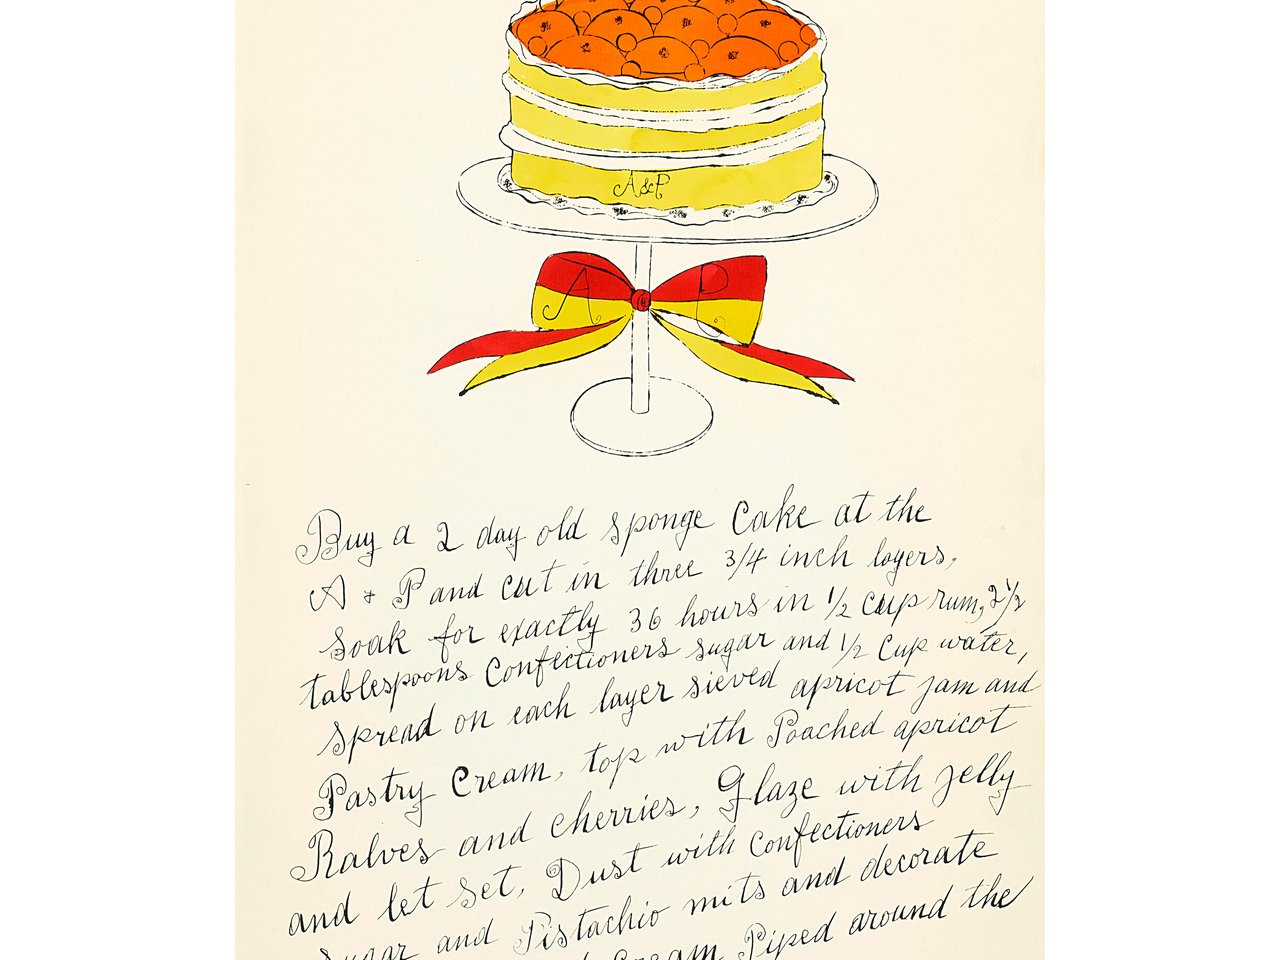 A&P
A P
Buy a 2 day old sponge Cake at the
A + P and cut in three 3/4 inch layers,
Soak for exactly 36 hours in 1/2 cup rum, 2 1/2
tablespoons Confectioners sugar and 1/2 Cup water,
Spread on each layer sieved apricot jam and
Pastry Cream, top with Poached apricot
Ralves and cherries, Glaze with jelly
and let set, Dust with Confectioners
Sugar and Pistachio mits and decorate
Cream Piped around the